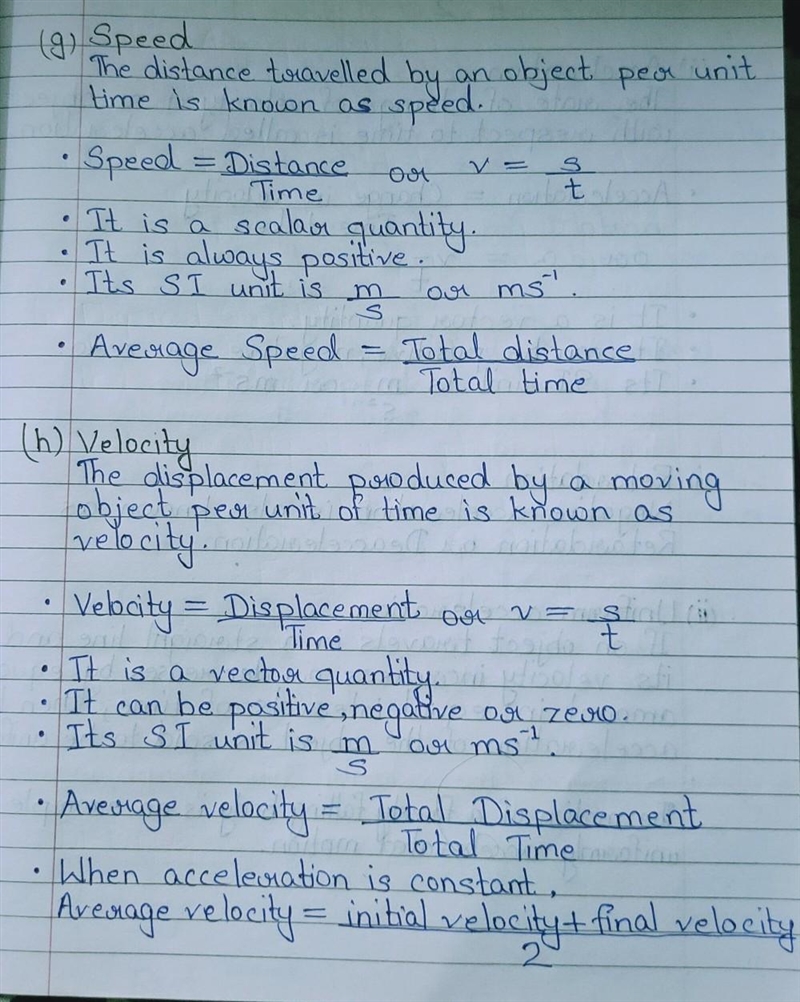 (g) Speed
The distance travelled by an object per unit
time is known as speed.
· Speed = Distance / Time or v = s / t
· It is a scalar quantity.
· It is always positive.
· Its SI unit is m / s or ms⁻¹.
· Average Speed = Total distance / Total time
(h) Velocity
The displacement produced by a moving
object per unit of time is known as
velocity.
· Velocity = Displacement / Time or v = s / t
· It is a vector quantity.
· It can be positive, negative or zero.
· Its SI unit is m / s or ms⁻¹.
· Average velocity = Total Displacement / Total Time
· When acceleration is constant,
Average velocity = initial velocity + final velocity / 2